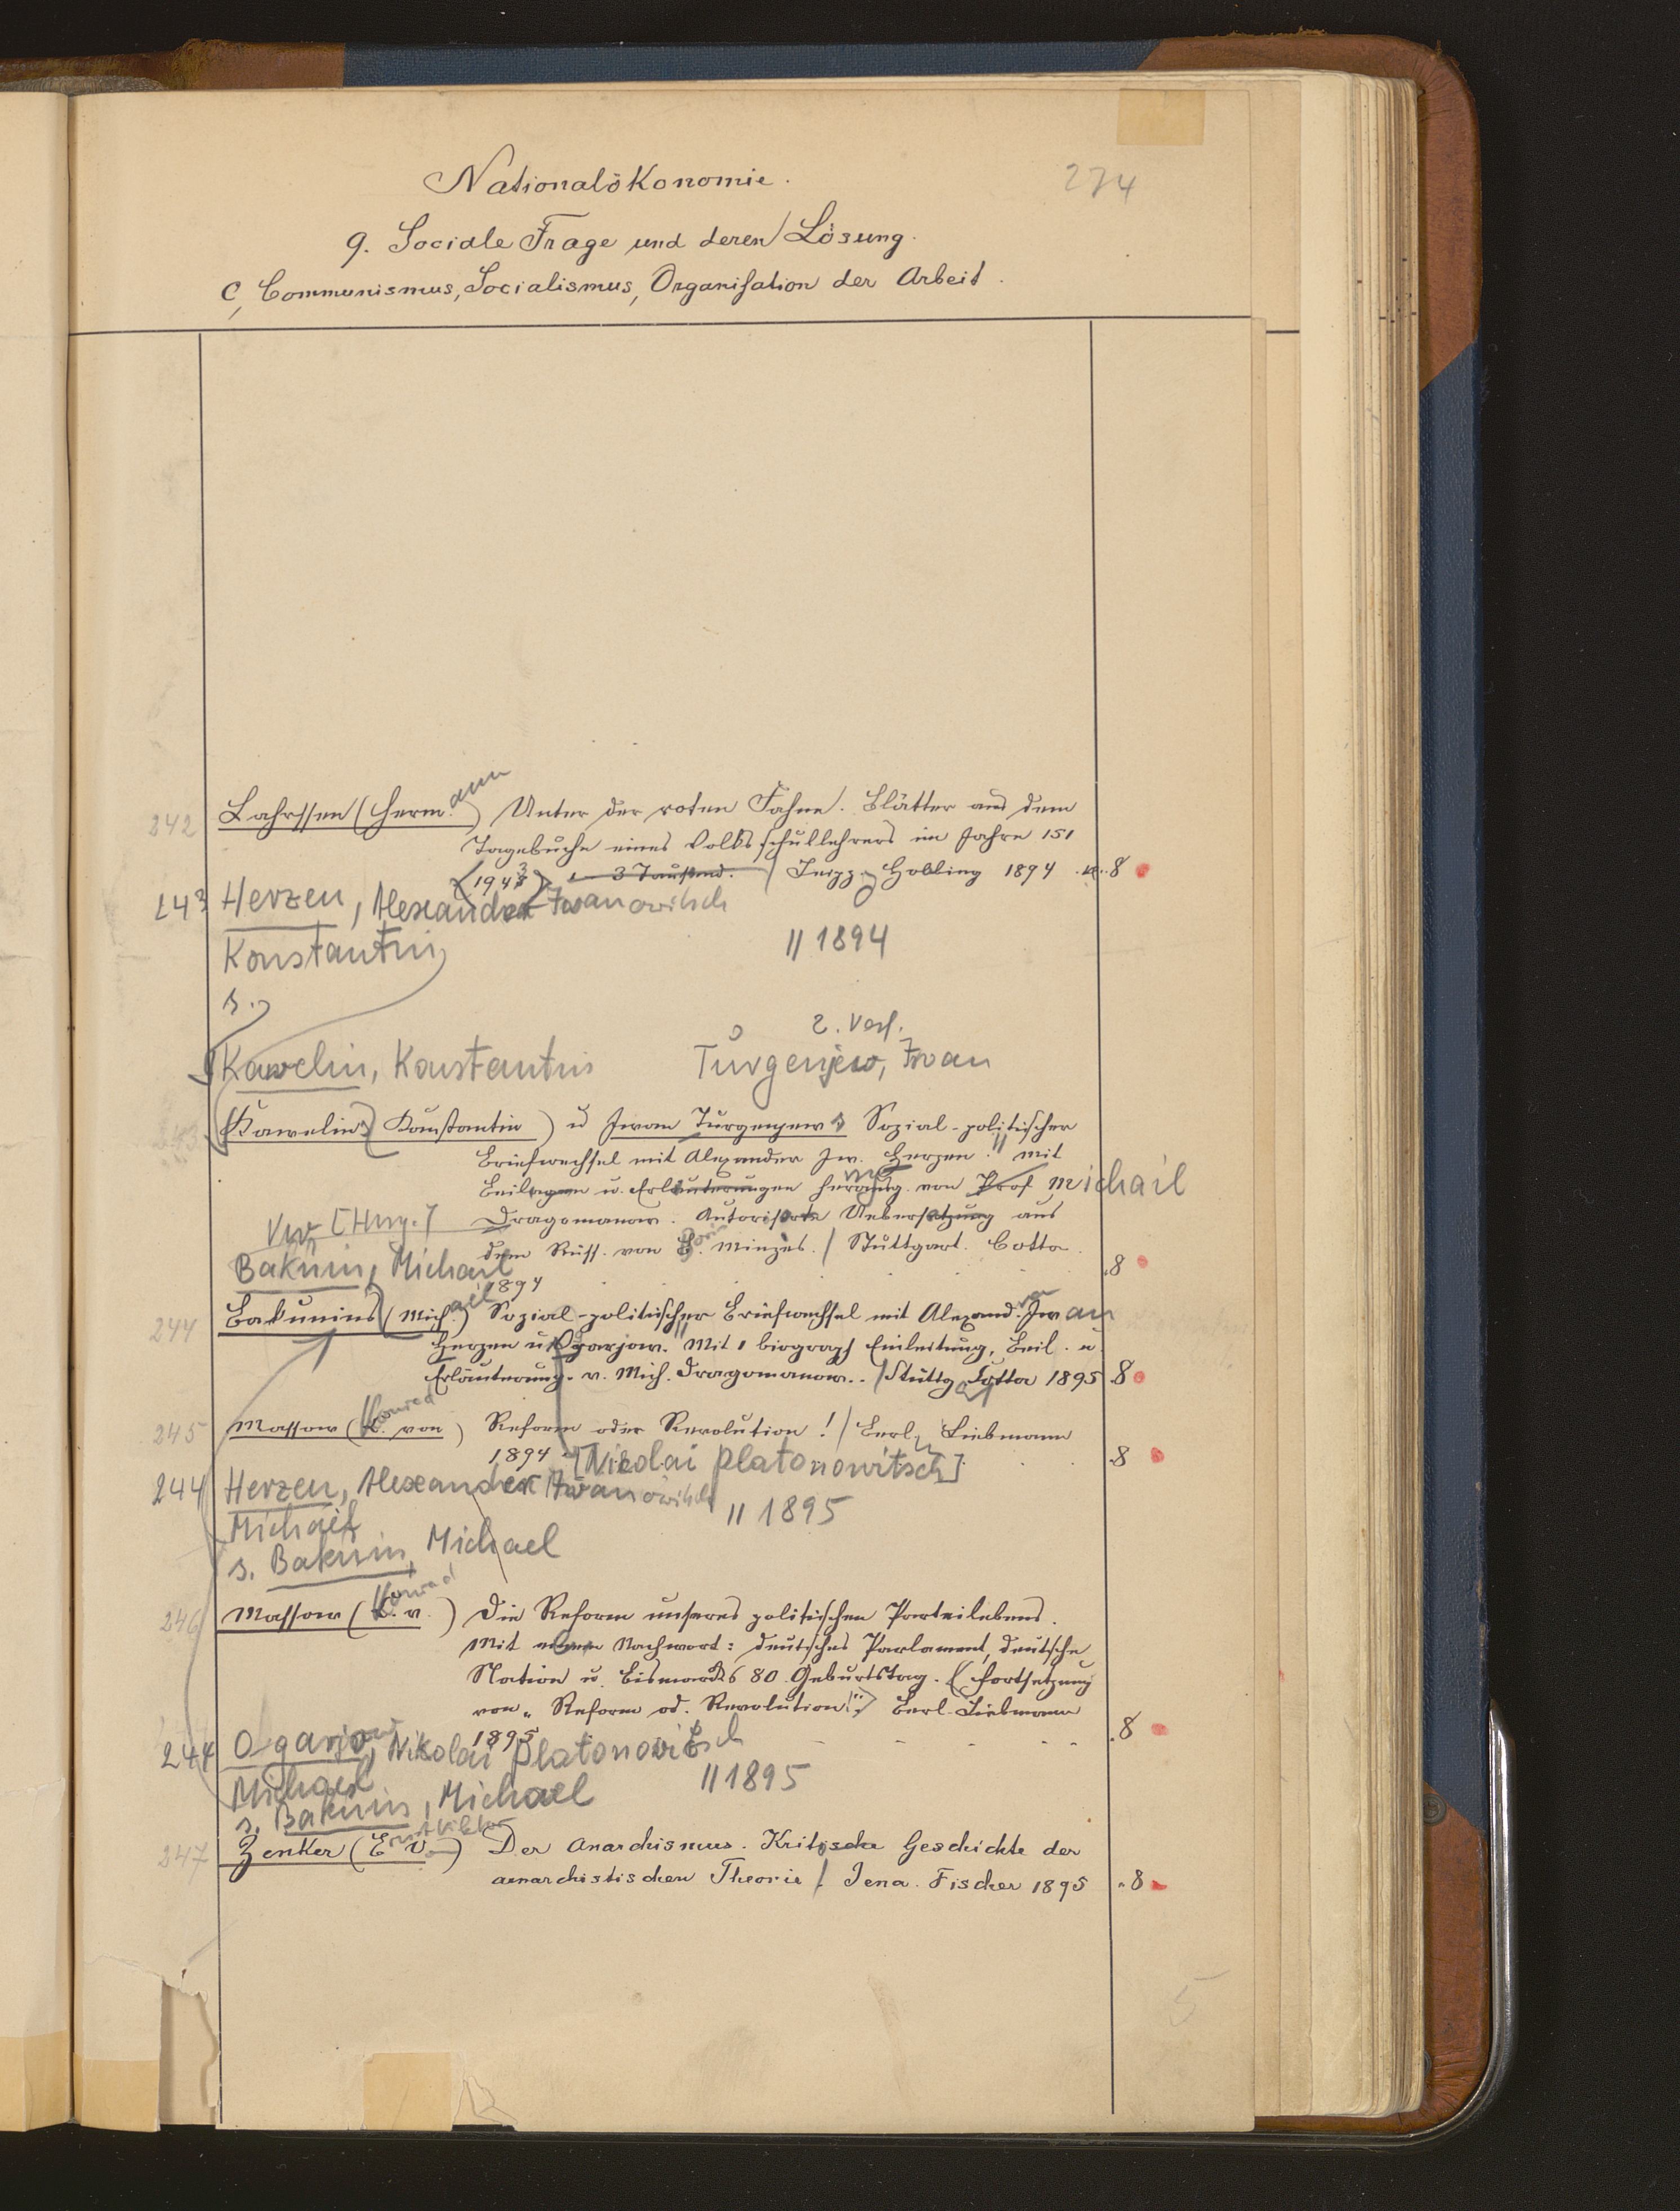 Nationalökonomie.
274
9. Sociale Frage und deren Lösung.
c, Communismus, Socialismus, Organisation der Arbeit.
242 Lahrssen (Herm.ann) Unter der roten Fahne. Blätter aus dem
Tagebuche eines Volksschullehrers im Jahre 151
(1943) 1-3 Tausend. / Leipz. Hobbing 1894 .8
243 Herzen, Alexander Iwanowitsch
Konstantin
|| 1894
s.
2. Verf.
Kawelin, Konstantin Turgenjew, Iwan
243 Kawelins (Konstantin) u Iwan Turgenjews Sozial-politischer
Briefwechsel mit Alexander Iw. Herzen. Mit
Beilagen u. Erläuterungen herausg. von Prof Michail
Dragomanow. Autorisierte Uebersetzung aus
[Hrsg.]
dem Russ. von Boris Minzès. / Stuttgart. Cotta.
Bakunin, Michail
1894 .8
244 Bakunins (Mich.ail) Sozial-politischer Briefwechsel mit Alexand. Iwan
Herzen u Ogarjow. Mit 1 biograph Einleitung, Beil. u.
Erläuterung. v. Mich. Dragomanow.. / Stuttg Cotta 1895 .8
245 Massow (Konrad von) Reform oder Revolution! / Berl. Liebmann
1894 .8
[Nikolai Platonowitsch]
244 Herzen, Alexander Iwanowitsch
|| 1895
Michail
s. Bakunin, Michael
246 Massow (Konrad v.) Die Reform unseres politischen Parteilebens.
Mit einem Nachwort: deutsches Parlament, deutsche
Nation u. Bismarcks 80 Geburtstag. (Fortsetzung
von „Reform od. Revolution!") Berl. Liebmann
1895 .8
244 Ogarjow, Nikolai Platonowitsch
Michael || 1895
s. Bakunin, Michael
247 Zenker (Ernst Viktor) Der Anarchismus. Kritische Geschichte der
anarchistischen Theorie / Jena. Fischer 1895 .8
5